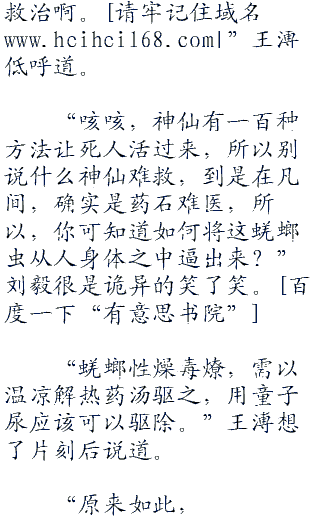 救治啊。[请牢记住域名
www.hcihci168.com|”王溥
低呼道。
“咳咳，神仙有一百种
方法让死人活过来，所以别
说什么神仙难救，到是在凡
间，确实是药石难医，所
以，你可知道如何将这蜣螂
虫从人身体之中逼出来？”
刘毅很是诡异的笑了笑。[百
度一下“有意思书院”]
“蜣螂性燥毒燎，需以
温凉解热药汤驱之，用童子
尿应该可以驱除。”王溥想
了片刻后说道。
“原来如此，